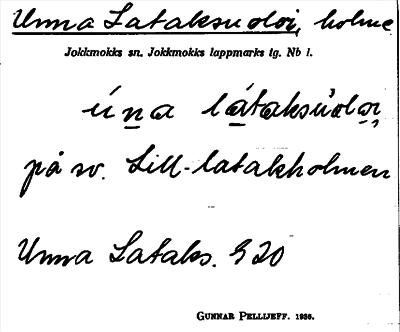 Unna Lataksuoloi, holme
Jokkmokks sn. Jokkmokks lappmarks tg. Nb l.
úna látaksu̇olai
på sv. Lill-latakholmen
Unna Lataks. G 20
GUNNAR PELLIJEFF. 1936.